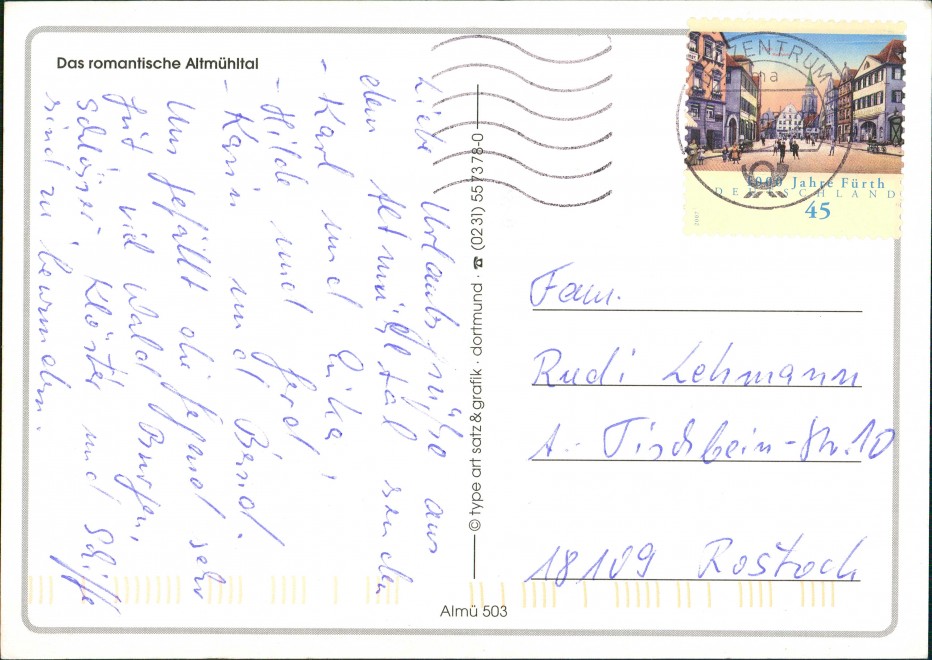 Das romantische Altmühltal
Liebe Urlaubsgrüße aus
dem Altmühltal senden
- Karl und Rika,
- Hilde und Gerd,
- Karin und Bernd.
Uns gefällt die Gegend sehr
gut viel Wald, Burgen,
Schlösser Klöster und Schiffe
sind zu bewundern.
© type art satz & grafik · dortmund · ☎ (0231) 557378-0
ZENTRUM
1000 Jahre Fürth
DEUTSCHLAND
45
2007
Fam.
Rudi Lehmann
A.-Tischbein-Str. 10
18109 Rostock
Almü 503